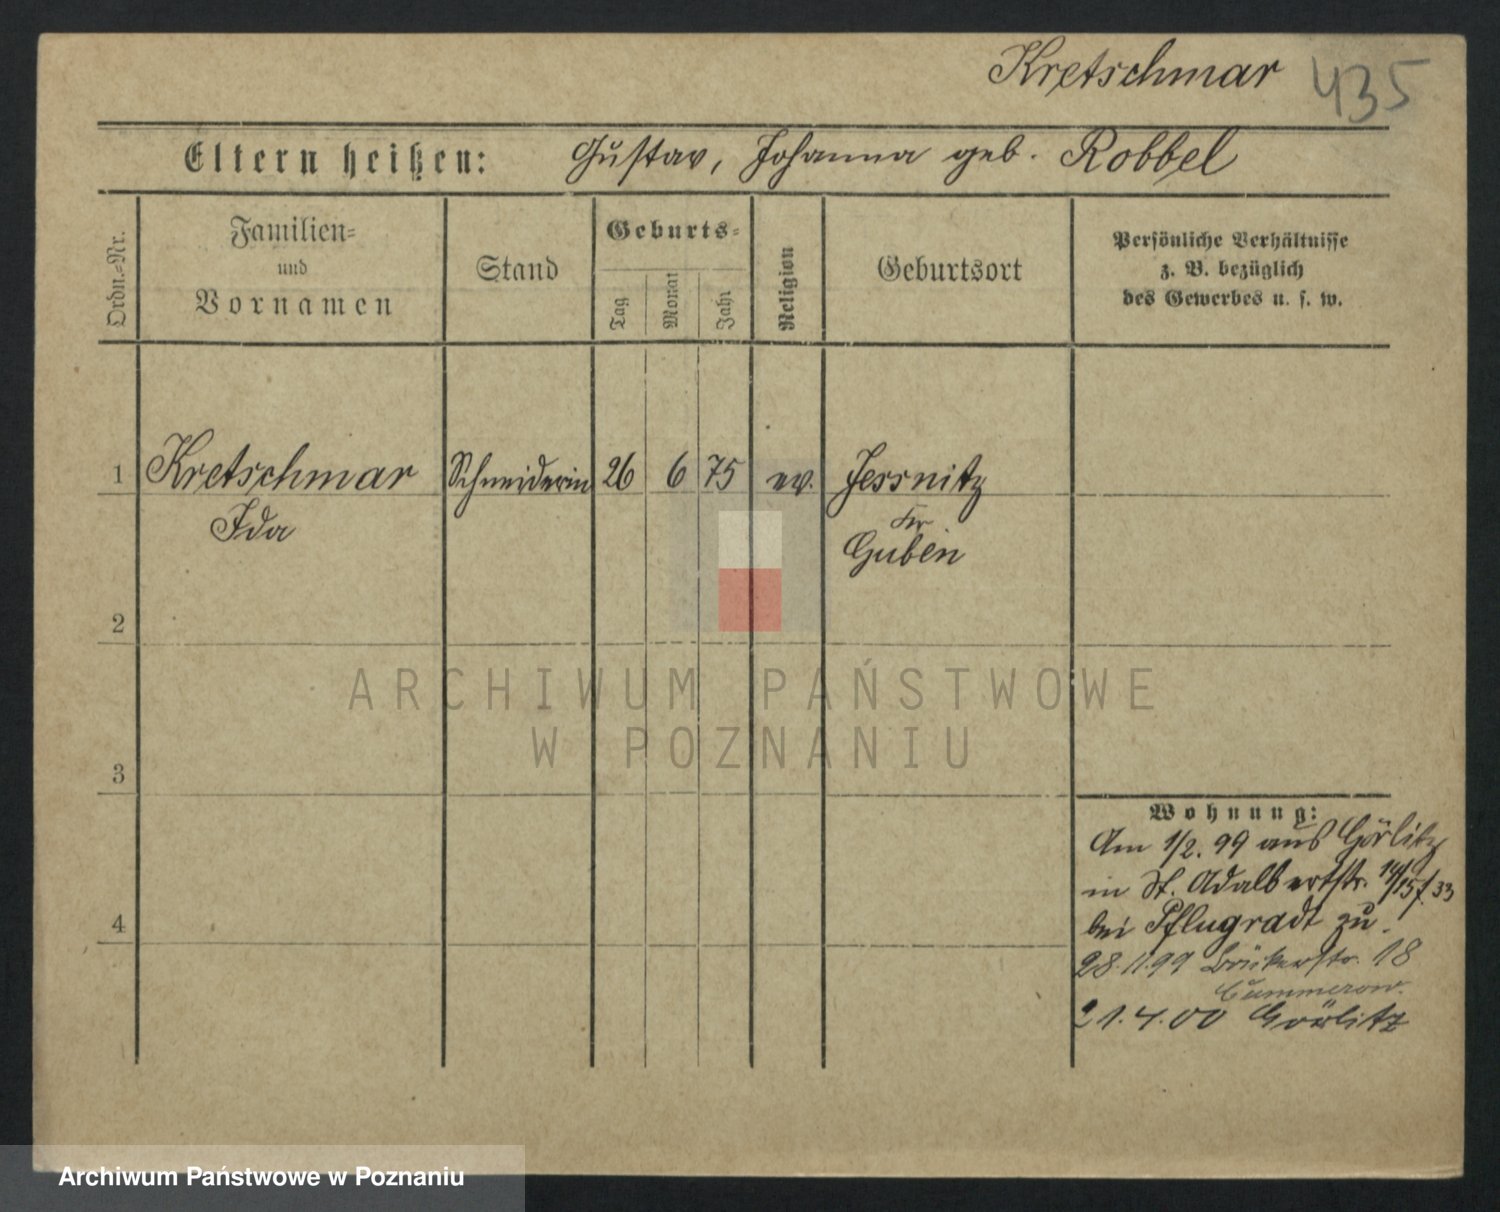 Kretschmar 435
Eltern heißen: Gustav, Johanna geb. Robbel
Ordn.=Nr.
Familien=
und
Vornamen
Stand
Geburts=
Tag
Monat
Jahr
Religion
Geburtsort
Persönliche Verhältnisse
z. B. bezüglich
des Gewerbes u. s. w.
1 Kretschmar Schneiderin 26 6 75 ev. Jessnitz
Ida
Kr
Guben
2
3
4
Wohnung:
Am 1/2. 99 aus Görlitz
in St. Adalbertstr. 14/15 f. 33
bei Pflugradt zu.
28. 11 99 18
Cummerow.
21.4.00 Görlitz
ARCHIWUM PAŃSTWOWE
W POZNANIU
Archiwum Państwowe w Poznaniu